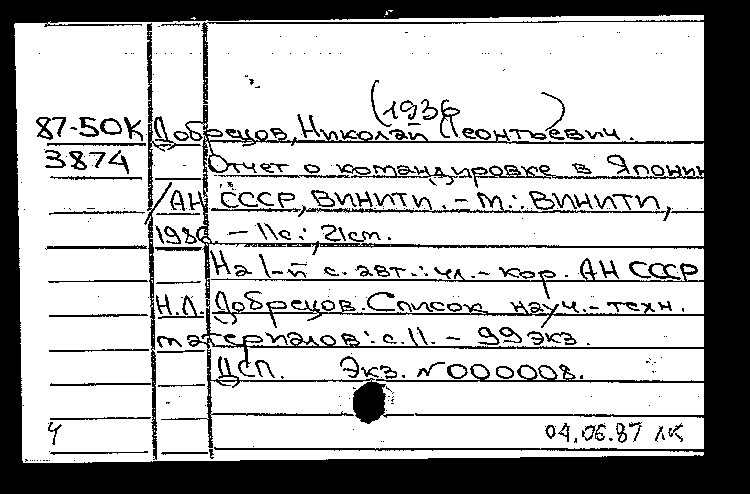 (1936 )
87-5ОК Добрецов, Николай Леонтьевич.
3874 Отчет о командировке в Японии
/АН СССР, ВИНИТИ. – М.: ВИНИТИ,
1986. – 11с.; 21см.
На 1-й с. авт.: чл.-кор. АН СССР
Н.Л. Добрецов. Список науч.-техн.
материалов: с.11. – 99 экз.
ДСП. Экз. №000008.
04.06.87 ЛК